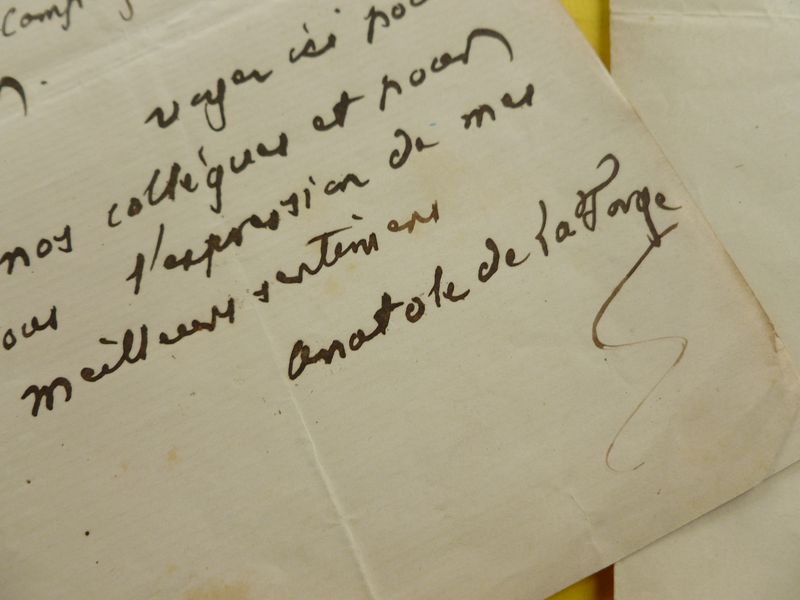 voyer ici pou
nos collègues et pour
ous l'expression de mes
meilleurs sentimens
Anatole de La Forge